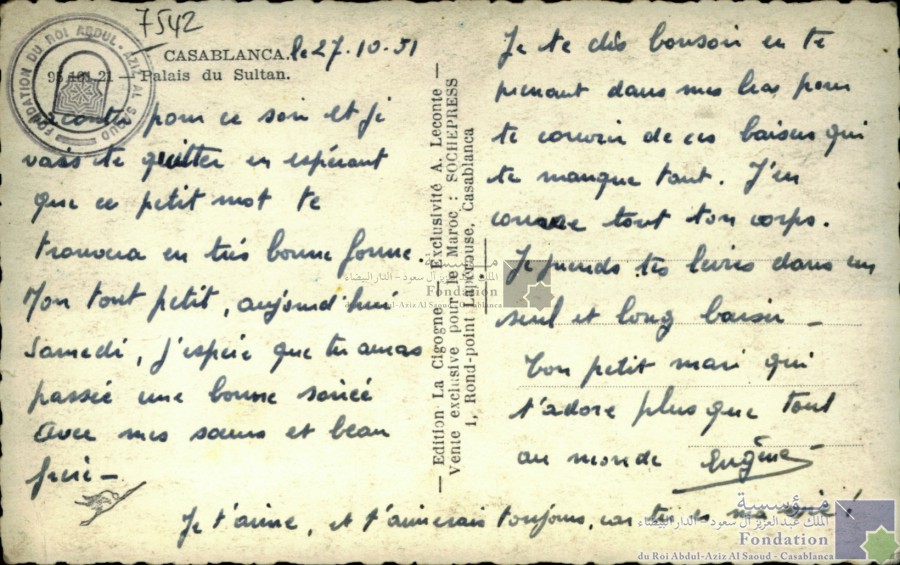 7542
FONDATION DU ROI ABDUL-AZIZ AL SAOUD
CASABLANCA. le 27-10-51
Palais du Sultan.
pour ce soir et je
vais te quitter en espérant
que ce petit mot te
trouvera en très bonne forme.
Mon tout petit, aujourd'hui
Samedi, j'espère que tu auras
passée une bonne soirée
avec mes sœurs et beau
frère -
Edition La Cigogne - Exclusivité A. Leconte -
Vente exclusive pour le Maroc : SOCHEPRESS
1, Rond-point Lapérouse, Casablanca
Je te dis bonsoir en te
prenant dans mes bras pour
te couvrir de ces baisers qui
te manque tant. J'en
couvre tout ton corps.
Je prends tes lèvres dans un
seul et long baiser -
Ton petit mari qui
t'adore plus que tout
au monde Eugène
Je t'aime, et t'aimerais toujours, car tu es ma vie!
مؤسسة
الملك عبد العزيز آل سعود - الدار البيضاء
Fondation
du Roi Abdul-Aziz Al Saoud - Casablanca
مؤسسة
الملك عبد العزيز آل سعود - الدار البيضاء
Fondation
du Roi Abdul-Aziz Al Saoud - Casablanca